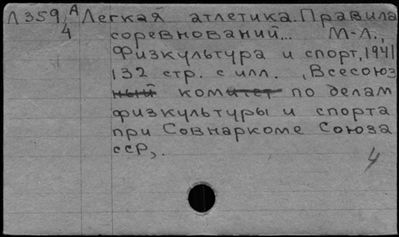 Л359 А Легкая атлетика. Правила
4 соревнований... М-Л.,
Физкультура и спорт, 1941
132 стр. с илл. , Всесоюз
ный комитет по делам
физкультуры и спорта
при Совнаркоме Союза
ССР,.
4